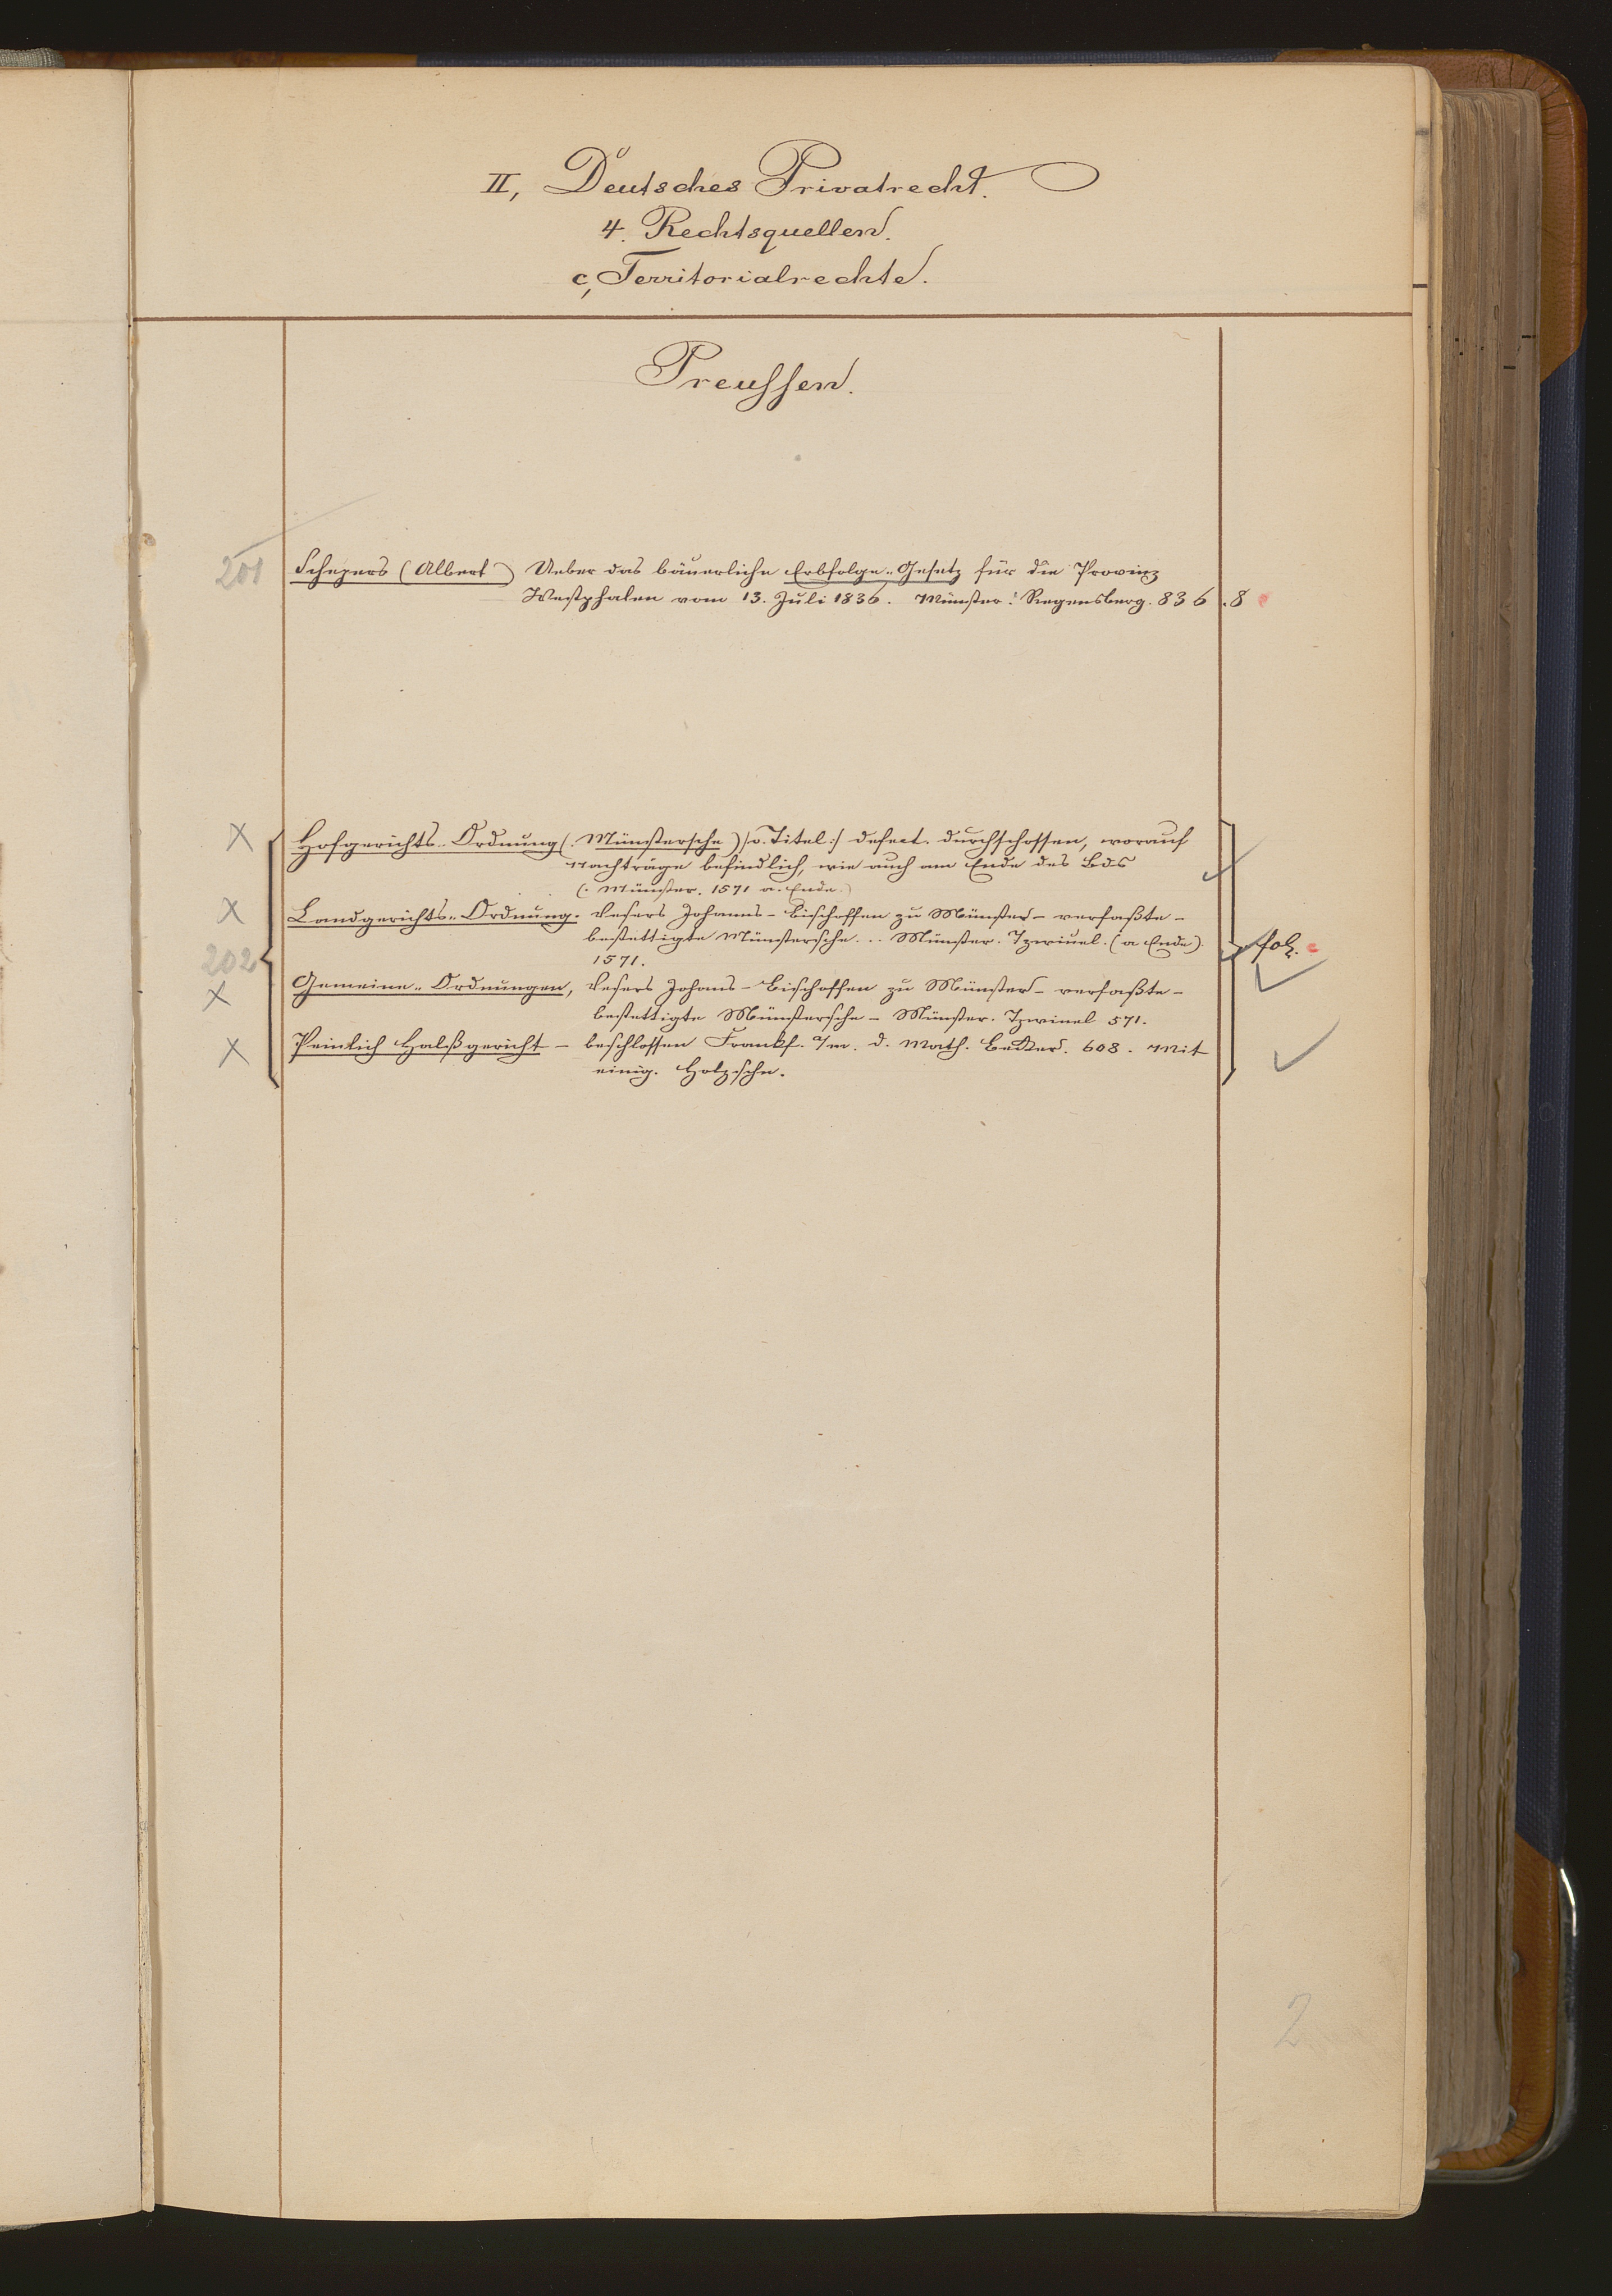 II, Deutsches Privatrecht.
4. Rechtsquellen.
c, Territorialrechte.
Preussen.
201 Schepers (Albert) Ueber das bäuerliche Erbfolge-Gesetz für die Provinz
Westphalen vom 13. Juli 1836. Münster: Regensberg. 836. 8
X Hofgerichts-Ordnung (: Münstersche) /o. Titel:/ defect. durchschossen, worauf
Nachträge befindlich, wie auch am Ende des Bds
(: Münster. 1571 a. Ende.)
X Landgerichts-Ordnung. Unsers Johanns - Bischoffen zu Münster - verfaßte -
202 bestettigte Münstersche ... Münster. Tzwiuel. (a Ende). fol.
1571.
X Gemeine-Ordnungen, Unsers Johans - Bischoffen zu Münster - verfaßte -
bestettigte Münstersche - Münster. Tzwiuel 571.
X Peinlich Halßgericht - beschlossen Frankf. a/m. d. Math. Becker. 608. Mit
einig. Holzschn.
2